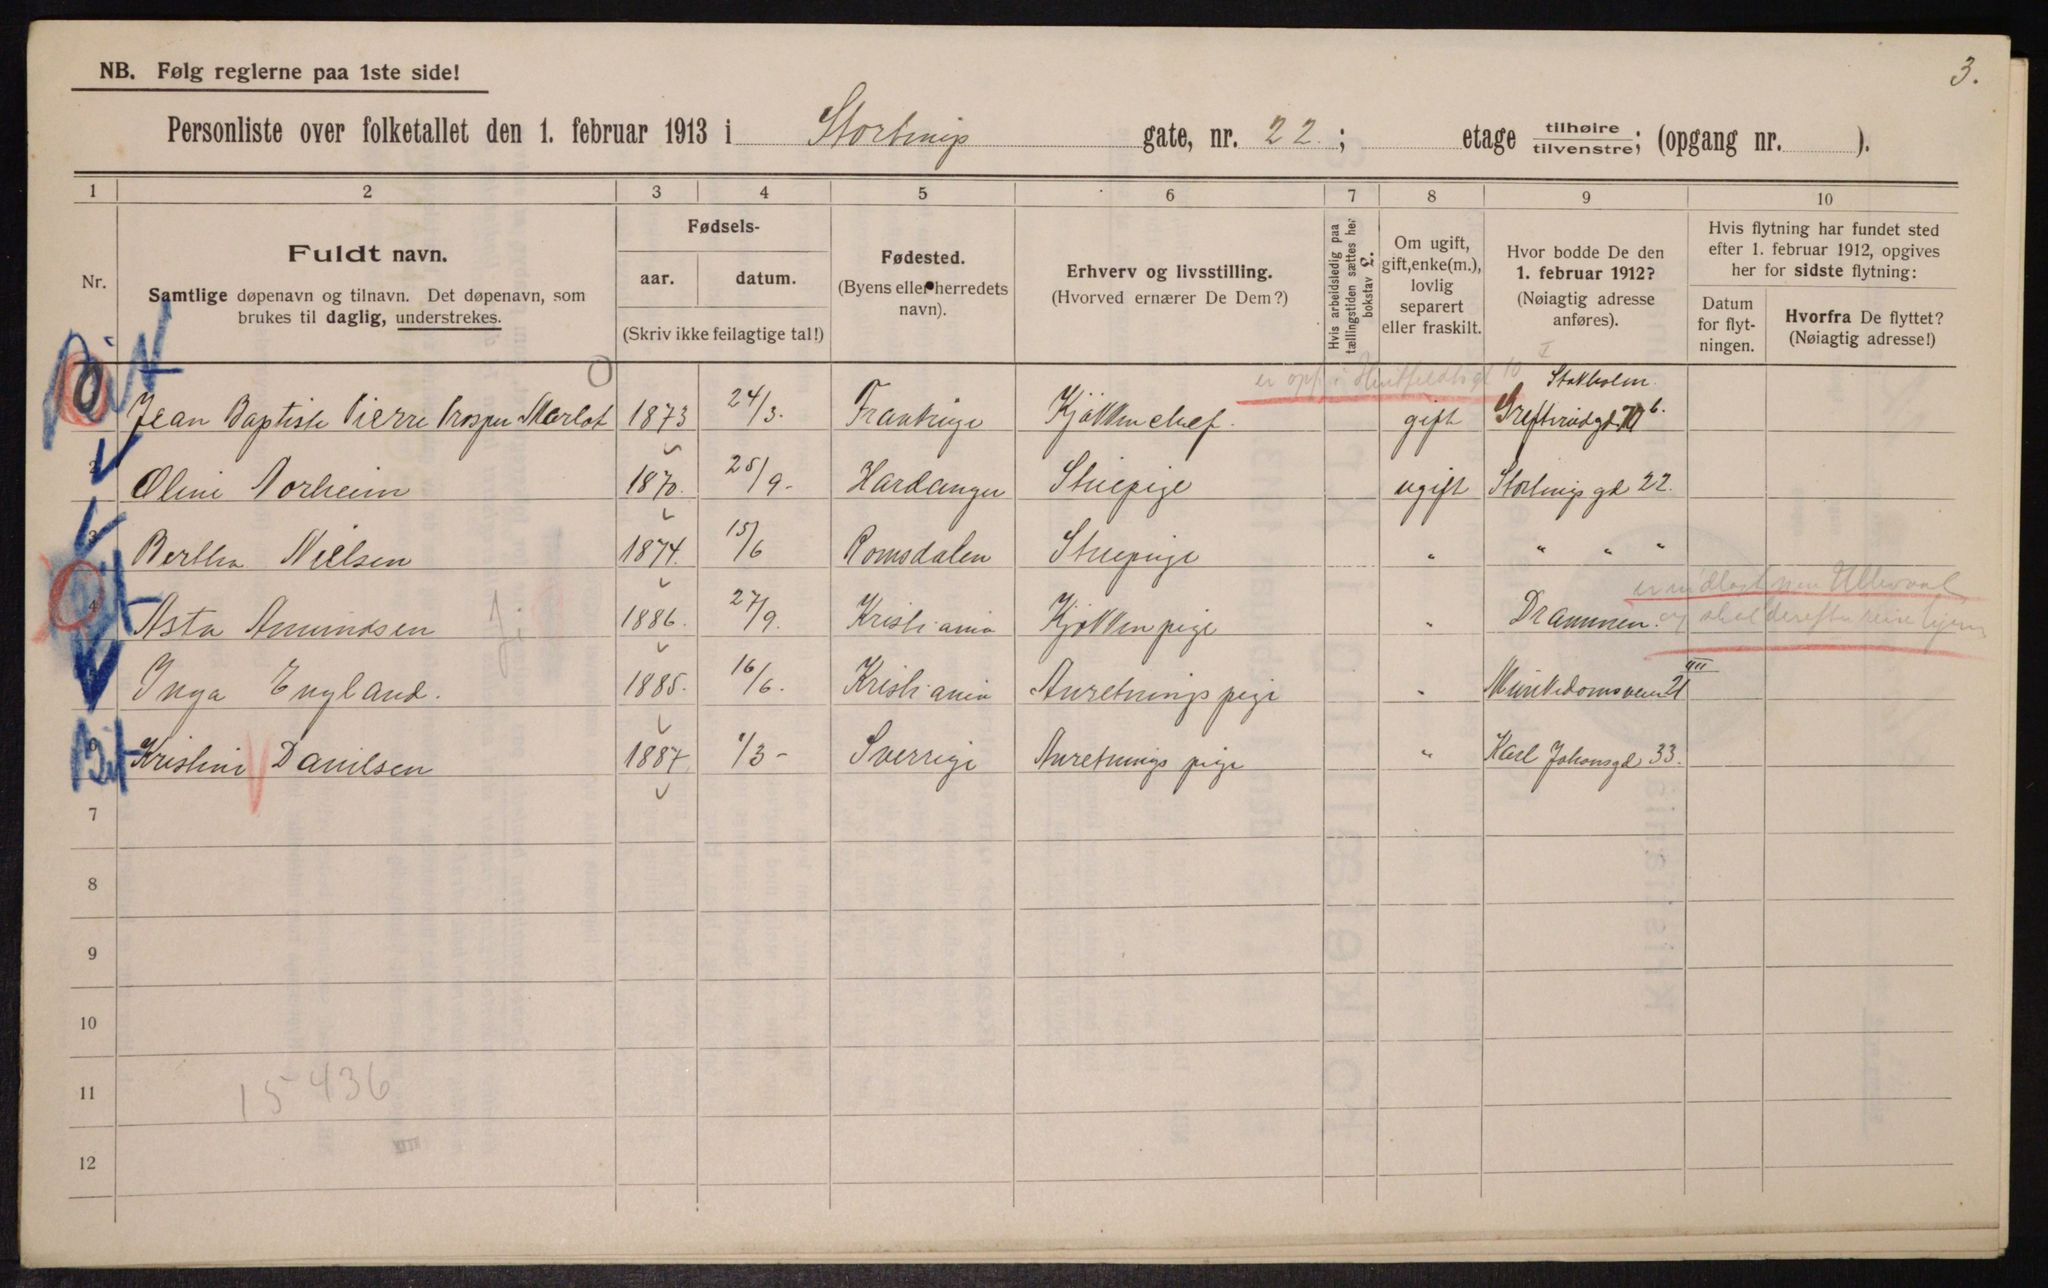 3.
NB. Følg reglerne paa 1ste side!
Personliste over folketallet den 1. februar 1913 i Stortings gate, nr. 22. ; etage tilhøire tilvenstre; (opgang nr. ).
1 2 3 4 5 6 7 8 9 10
Nr.
Fuldt navn.
Samtlige døpenavn og tilnavn. Det døpenavn, som
brukes til daglig, understrekes.
Fødsels-
aar. datum.
(Skriv ikke feilagtige tal!)
Fødested.
(Byens eller herredets
navn).
Erhverv og livsstilling.
(Hvorved ernærer De Dem?)
Hvis arbeidsledig paa
tællingstiden sættes her
bokstav L.
Om ugift,
gift, enke(m.),
lovlig
separert
eller fraskilt.
Hvor bodde De den
1. februar 1912?
(Nøiagtig adresse
anføres).
Hvis flytning har fundet sted
efter 1. februar 1912, opgives
her for sidste flytning:
Datum
for flyt-
ningen.
Hvorfra De flyttet?
(Nøiagtig adresse!)
er opf. i 10
Stokholm.
Jean Baptiste Pierre Prosper Marlot 1873 24/3. Frankrige Kjøkkenchef. gift
2 Oline Norheim 1870. 25/9- Hardanger Stuepige ugift Stortings gd 22.
3 Bertha Nielsen 1874. 15/6 Romsdalen Stuepige " " " "
er indlagt paa Ullevaal
4 Asta Amundsen 1886. 27/9. Kristiania Kjøkkenpige " Drammen. og skal derefter reise hjem
III
Inga England. 1885. 16/6. Kristiania Anretningspige " Munkedamsveien 21
6 Kristine Danielsen 1887. 1/3- Sverrige Anretningspige " Karl Johansgd 33.
7
8
9
10
11
15436
12